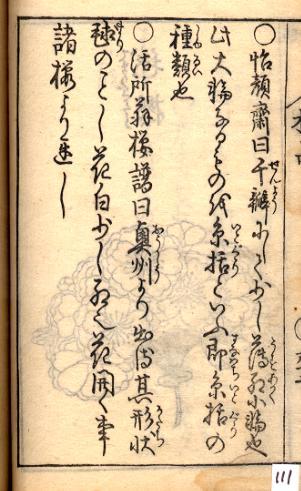 ○怡顔齋曰千瓣にして少し薄紅小輪也
此大輪なるものを糸括といふ即糸括の
種類也
○活所翁桜譜曰奥州より出る其形状
毬のことし花白少し紅也花開く事
諸桜より遅し
111